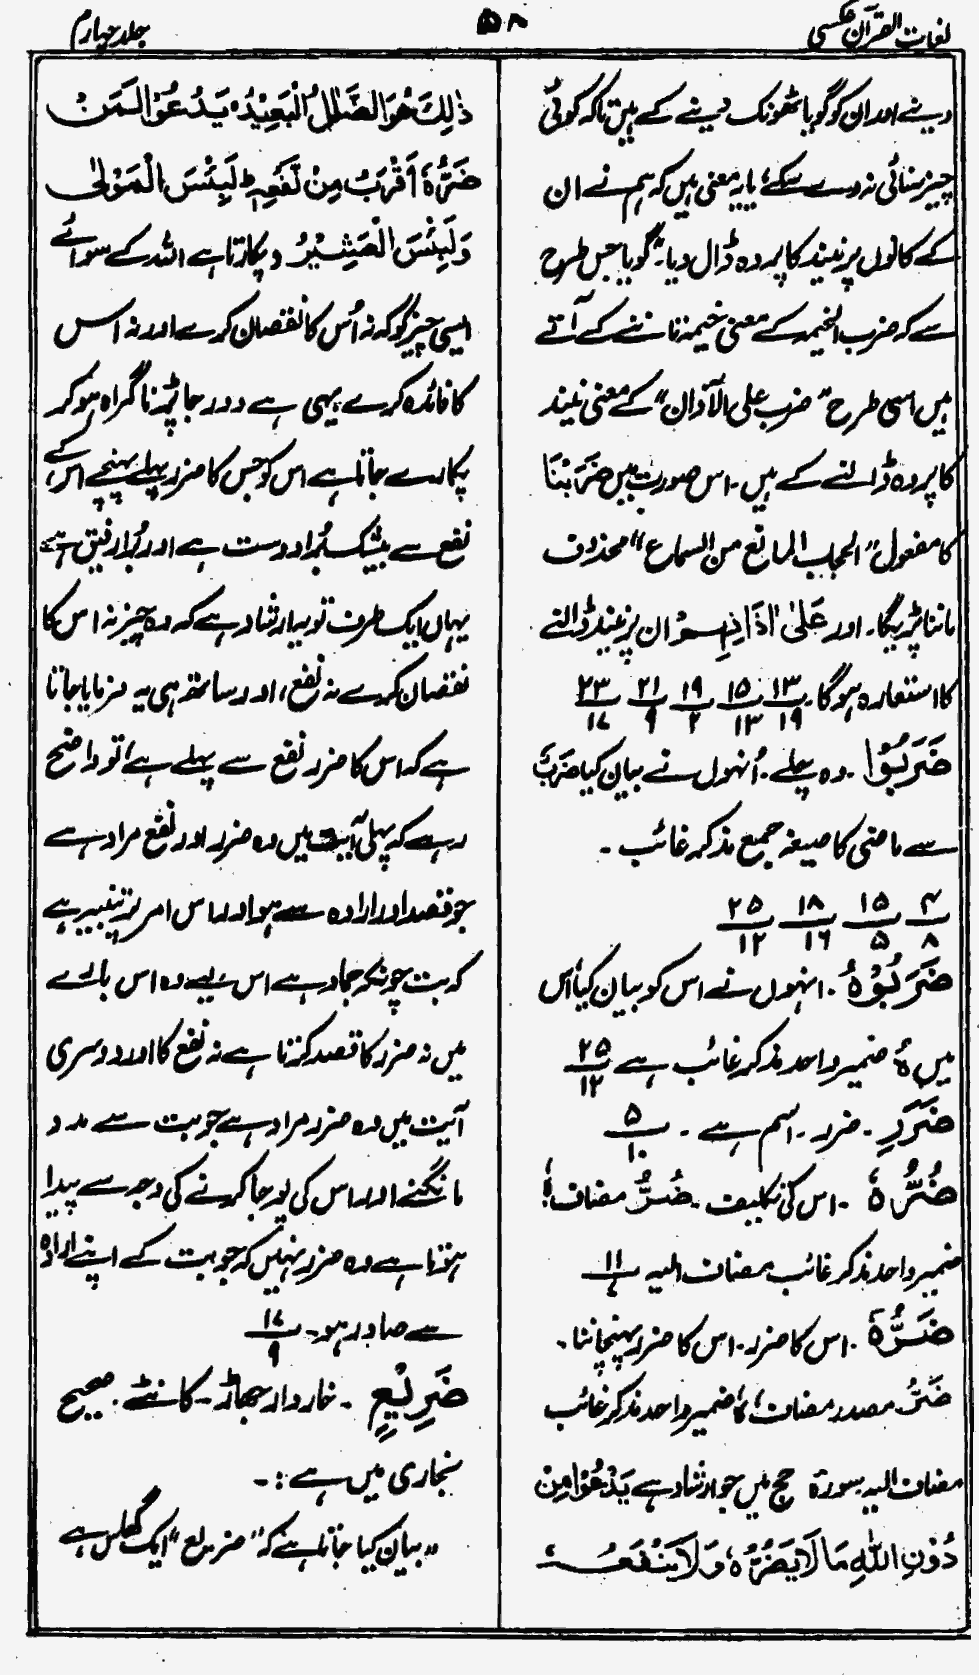 لغات القرآن عکسی
۵۸
جلد چہارم
دیئے اور ان کو گویا ٹھونک دینے کے ہیں تاکہ کوئی
چیز سنائی نہ دے سکے، یا یہ معنی ہیں کہ ہم نے ان
کے کانوں پر نیند کا پردہ ڈال دیا۔ گویا جس طرح
سے کہ ضرب الخیمہ کے معنی خیمہ تاننے کے آتے
ہیں اسی طرح "ضرب علی الآذان" کے معنی نیند
کا پردہ ڈالنے کے ہیں۔ اس صورت میں ضَرَبْنَا
کا مفعول "الحجاب المانع من السماع" محذوف
ماننا پڑیگا۔ اور عَلیٰ اٰذَانِہِمْ ان پر نیند ڈالنے
کا استعارہ ہوگا ۱۳/۱۹ ۱۵/۱۳ ۱۹/۲ ۲۱/۹ ۲۳/۱۷
ضَرَبُوْا۔ وہ چلے۔ اُنہوں نے بیان کیا ضَرْبٌ
سے ماضی کا صیغہ جمع مذکر غائب۔
۴/۸ ۱۵/۵ ۱۸/۱۶ ۲۵/۱۲
ضَرَبُوْہُ۔ انہوں نے اس کو بیان کیا اس
میں ہُ ضمیر واحد مذکر غائب ہے ۲۵/۱۲
ضَرَرِ۔ ضرر۔ اسم ہے۔ ۵/۱۰
ضُرَّہٗ۔ اس کی تکلیف۔ ضُرَّ مضاف، ہٗ
ضمیر واحد مذکر غائب مضاف الیہ ۱۱/۷
ضَرُّہٗ۔ اس کا ضرر۔ اس کا ضرر پہنچانا۔
ضَرُّ مصدر مضاف، ہٗ ضمیر واحد مذکر غائب
مضاف الیہ سورۃ حج میں جو ارشاد ہے یَدْعُوْا مِنْ
دُوْنِ اللّٰہِ مَا لَا یَضُرُّہٗ وَلَا یَنْفَعُہٗ
ذٰلِكَ هُوَ الضَّلٰلُ الْبَعِیْدُ ہ یَدْعُوْا لَمَنْ
ضَرُّہٗ اَقْرَبُ مِنْ نَّفْعِہٖ ط لَبِئْسَ الْمَوْلٰی
وَلَبِئْسَ الْعَشِیْرُ و پکارتا ہے اللہ کے سوائے
ایسی چیز کو کہ نہ اُس کا نقصان کرے اور نہ اس
کا فائدہ کرے یہی ہے دور جا پڑنا گمراہ ہو کر
پکارے جاتا ہے اس کو جس کا ضرر پہلے پہنچے اس کے
نفع سے بیشک بُرا دوست ہے اور بُرا رفیق ہے
یہاں ایک طرف تو یہ ارشاد ہے کہ وہ چیز نہ اس کا
نقصان کرے نہ نفع، اور ساتھ ہی یہ فرمایا جاتا
ہے کہ اس کا ضرر نفع سے پہلے ہے، تو واضح
رہے کہ پہلی آیت میں وہ ضرر اور نفع مراد ہے
جو قصد اور ارادہ سے ہو اور اس امر پر تنبیہ ہے
کہ بت چونکہ جماد ہے اس لیے وہ اس بارے
میں نہ ضرر کا قصد کرتا ہے نہ نفع کا اور دوسری
آیت میں وہ ضرر مراد ہے جو بت سے مدد
مانگنے اور اس کی پوجا کرنے کی وجہ سے پیدا
ہوتا ہے وہ ضرر نہیں کہ جو بت کے اپنے ارادہ
سے صادر ہو۔ ۱۷/۹
ضَرِیْعٍ۔ خاردار جھاڑ۔ کانٹے۔ صحیح
بخاری میں ہے:۔
"بیان کیا جاتا ہے کہ "ضریع" ایک گھاس ہے